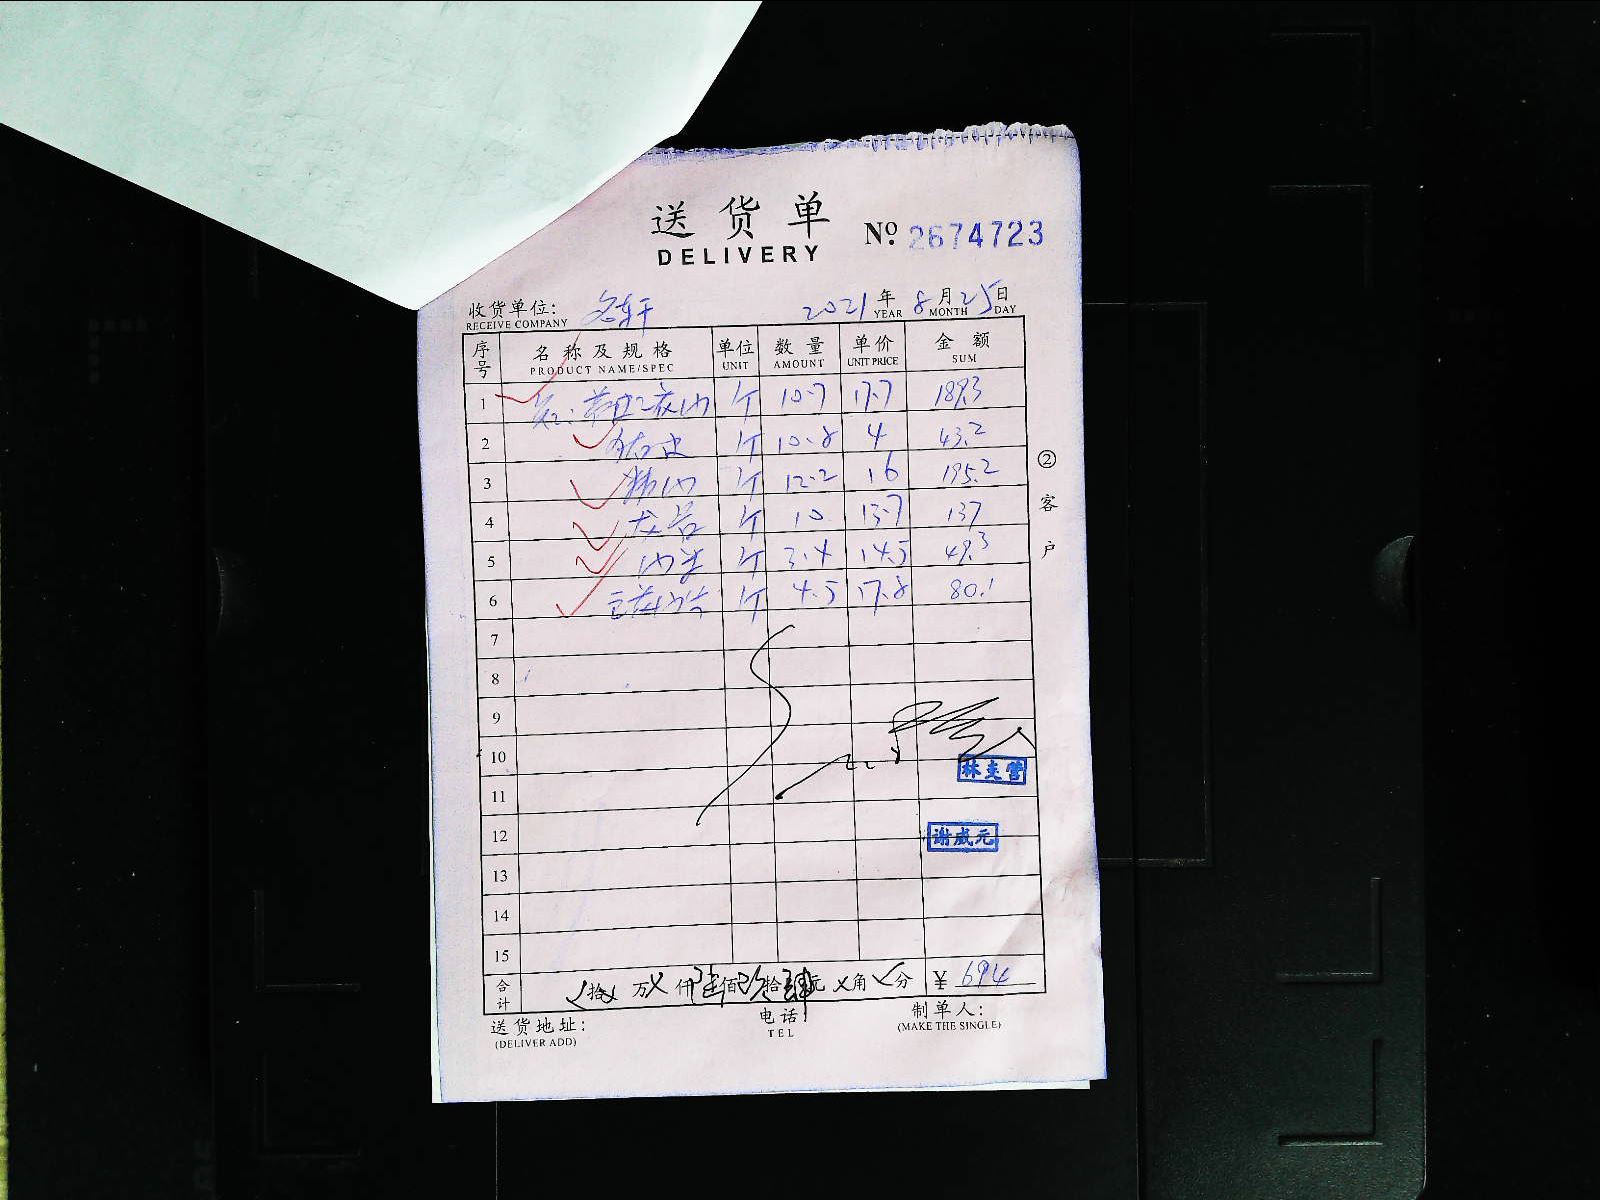 送货单
DELIVERY
No. 2674723
收货单位:
RECEIVE COMPANY
2021年8月25日
YEAR MONTH DAY
序号 名称及规格 单位 数量 单价 金额
PRODUCT NAME/SPEC UNIT AMOUNT UNIT PRICE SUM
1 斤 10.7 17.7 189.3
2 猪皮 斤 10.8 4 43.2
3 精肉 斤 12.2 16 195.2
4 龙骨 斤 10 13.7 137
5 斤 3.4 14.5 49.3
6 斤 4.5 17.8 80.1
7
8
9
10
林主管
11
12
谢成元
13
14
15
合计 拾 万 仟 佰 拾 元 角 分 ¥ 694
②客户
送货地址:
(DELIVER ADD)
电话
TEL
制单人:
(MAKE THE SINGLE)